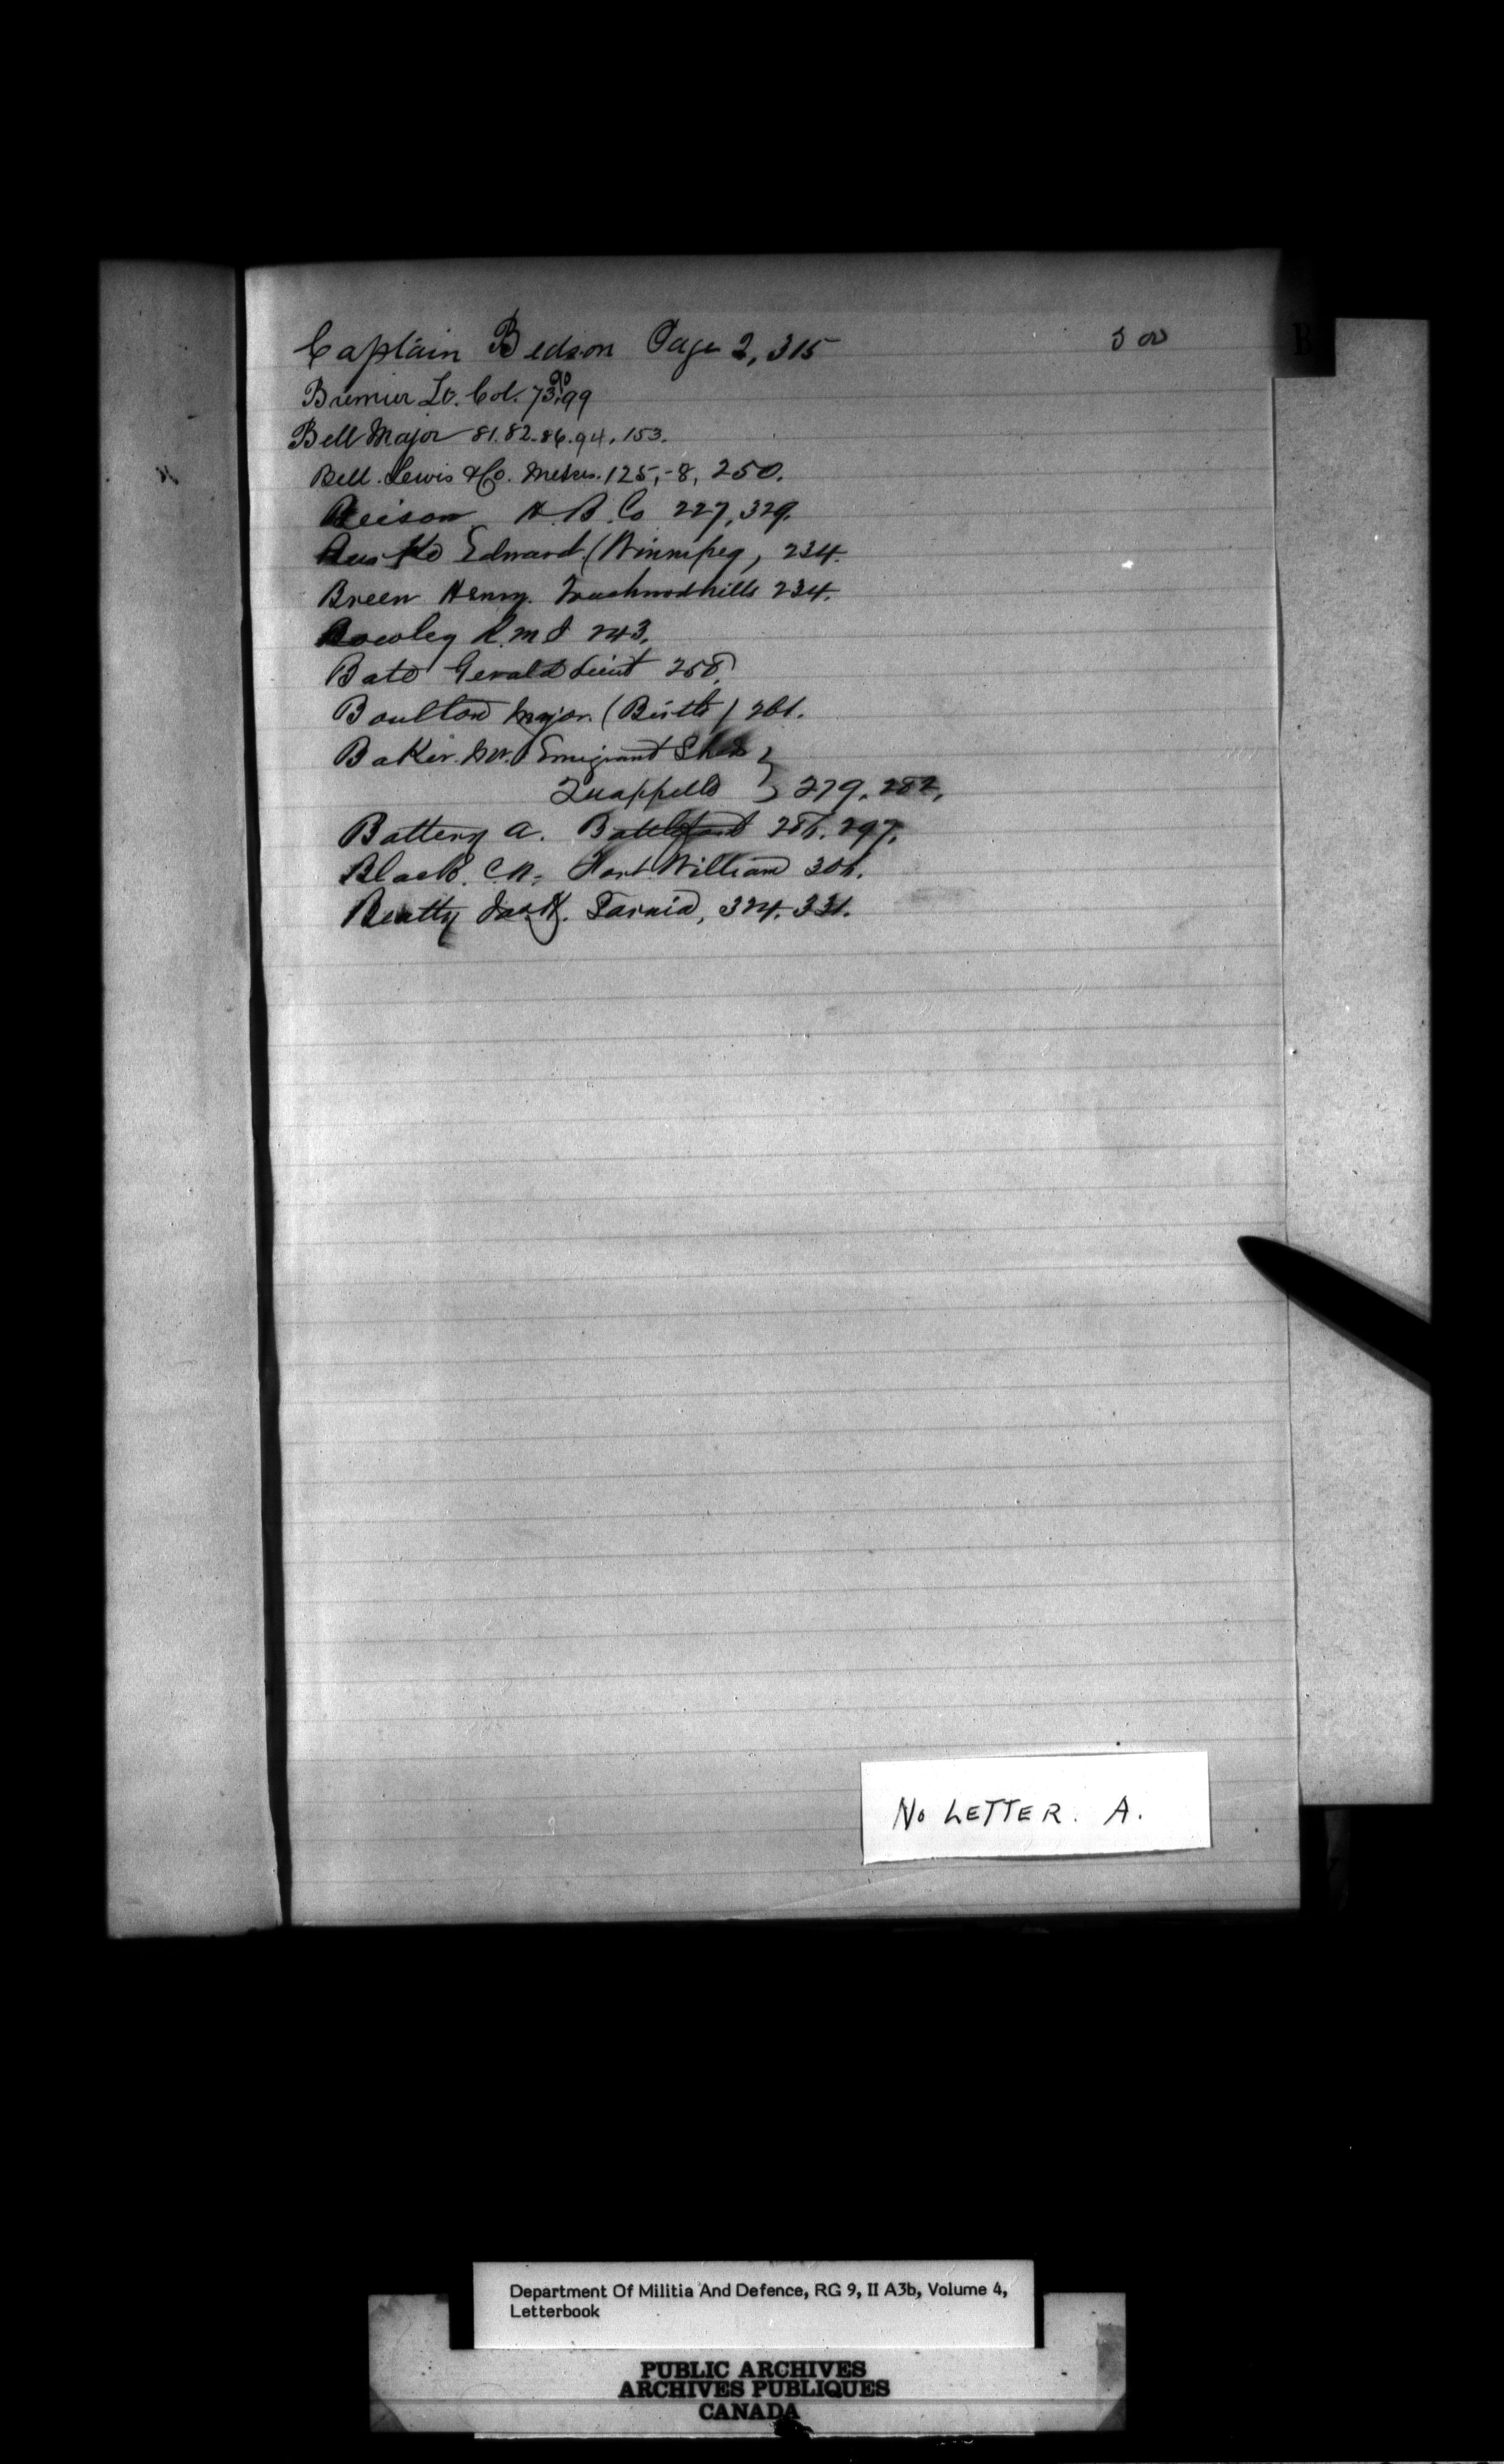 Captain Bedson Page 2, 315
B
Bremner Lt. Col. 73, 90, 99
Bell Major 81. 82. 86. 94. 153.
Bell. Lewis &Co. Messrs. 125, -8, 250.
H. B. Co 227, 329.
Edward (Winnipeg, 234.
Breen Henry. Touchwood hills 234.
Rowley 243.
Bate Gerald Lieut 258.
Boulton Major. (Birtle) 261.
Baker. Mr. Emigrant Shed
Quappelle } 279, 282,
Battery A. Battleford 286. 297.
Black. C.N. Fort William 306.
Beatty Jas. H. Sarnia, 324. 331.
No LETTER. A.
Department Of Militia And Defence, RG 9, II A3b, Volume 4,
Letterbook
PUBLIC ARCHIVES
ARCHIVES PUBLIQUES
CANADA